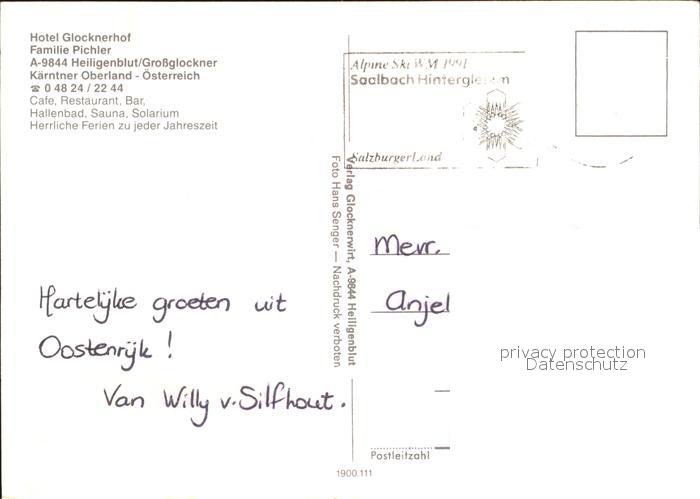 Hotel Glocknerhof
Familie Pichler
A-9844 Heiligenblut/Großglockner
Kärntner Oberland - Österreich
☎ 0 48 24 / 22 44
Cafe, Restaurant, Bar,
Hallenbad, Sauna, Solarium
Herrliche Ferien zu jeder Jahreszeit
Alpine Ski WM 1991
Saalbach Hinterglemm
SalzburgerLand
Verlag Glocknerwirt, A-9844 Heiligenblut
Foto Hans Senger — Nachdruck verboten
Hartelijke groeten uit
Oostenrijk !
Van Willy v. Silfhout.
Mevr.
Anjel
privacy protection
Datenschutz
Postleitzahl
1900.111